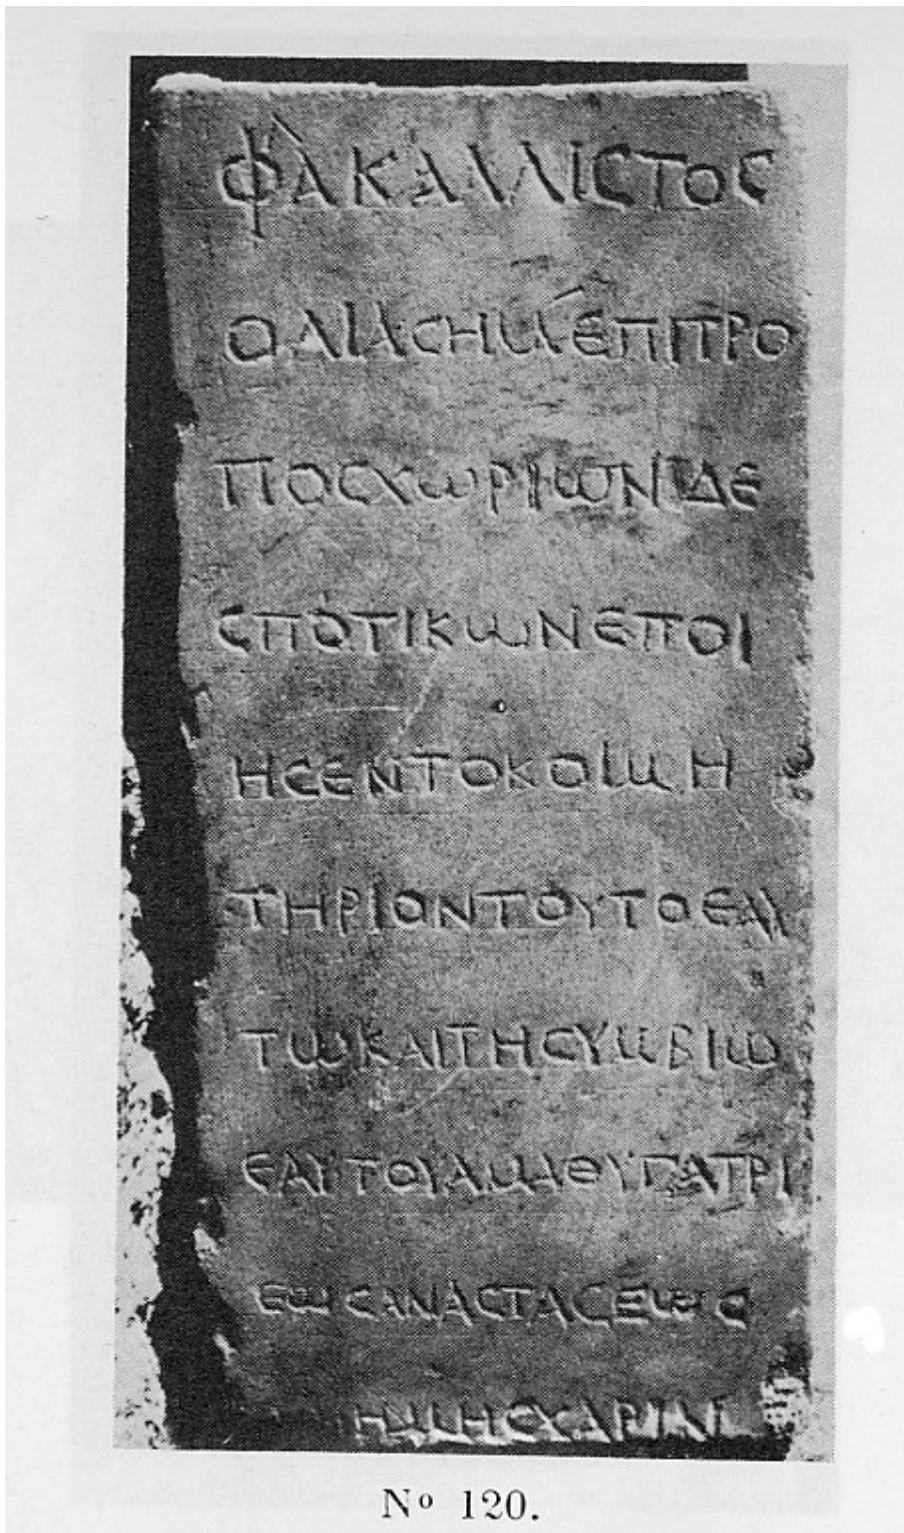 ΦΛΚΑΛΛΙϹΤΟϹ
ΟΔΙΑϹΗΜΕΠΙΤΡΟ
ΠΟϹΧωΡΙωΝΔΕ
ϹΠΟΤΙΚωΝΕΠΟΙ
ΗϹΕΝΤΟΚΟΙΜΗ
ΤΗΡΙΟΝΤΟΥΤΟΕΑΥ
ΤωΚΑΙΤΗϹΥΜΒΙω
ΕΑΥΤΟΥΑΜΑΘΥΓΑΤΡΙ
ΕωϹΑΝΑϹΤΑϹΕωϹ
ΗΜΗϹΧΑΡΙΝ
Nº 120.